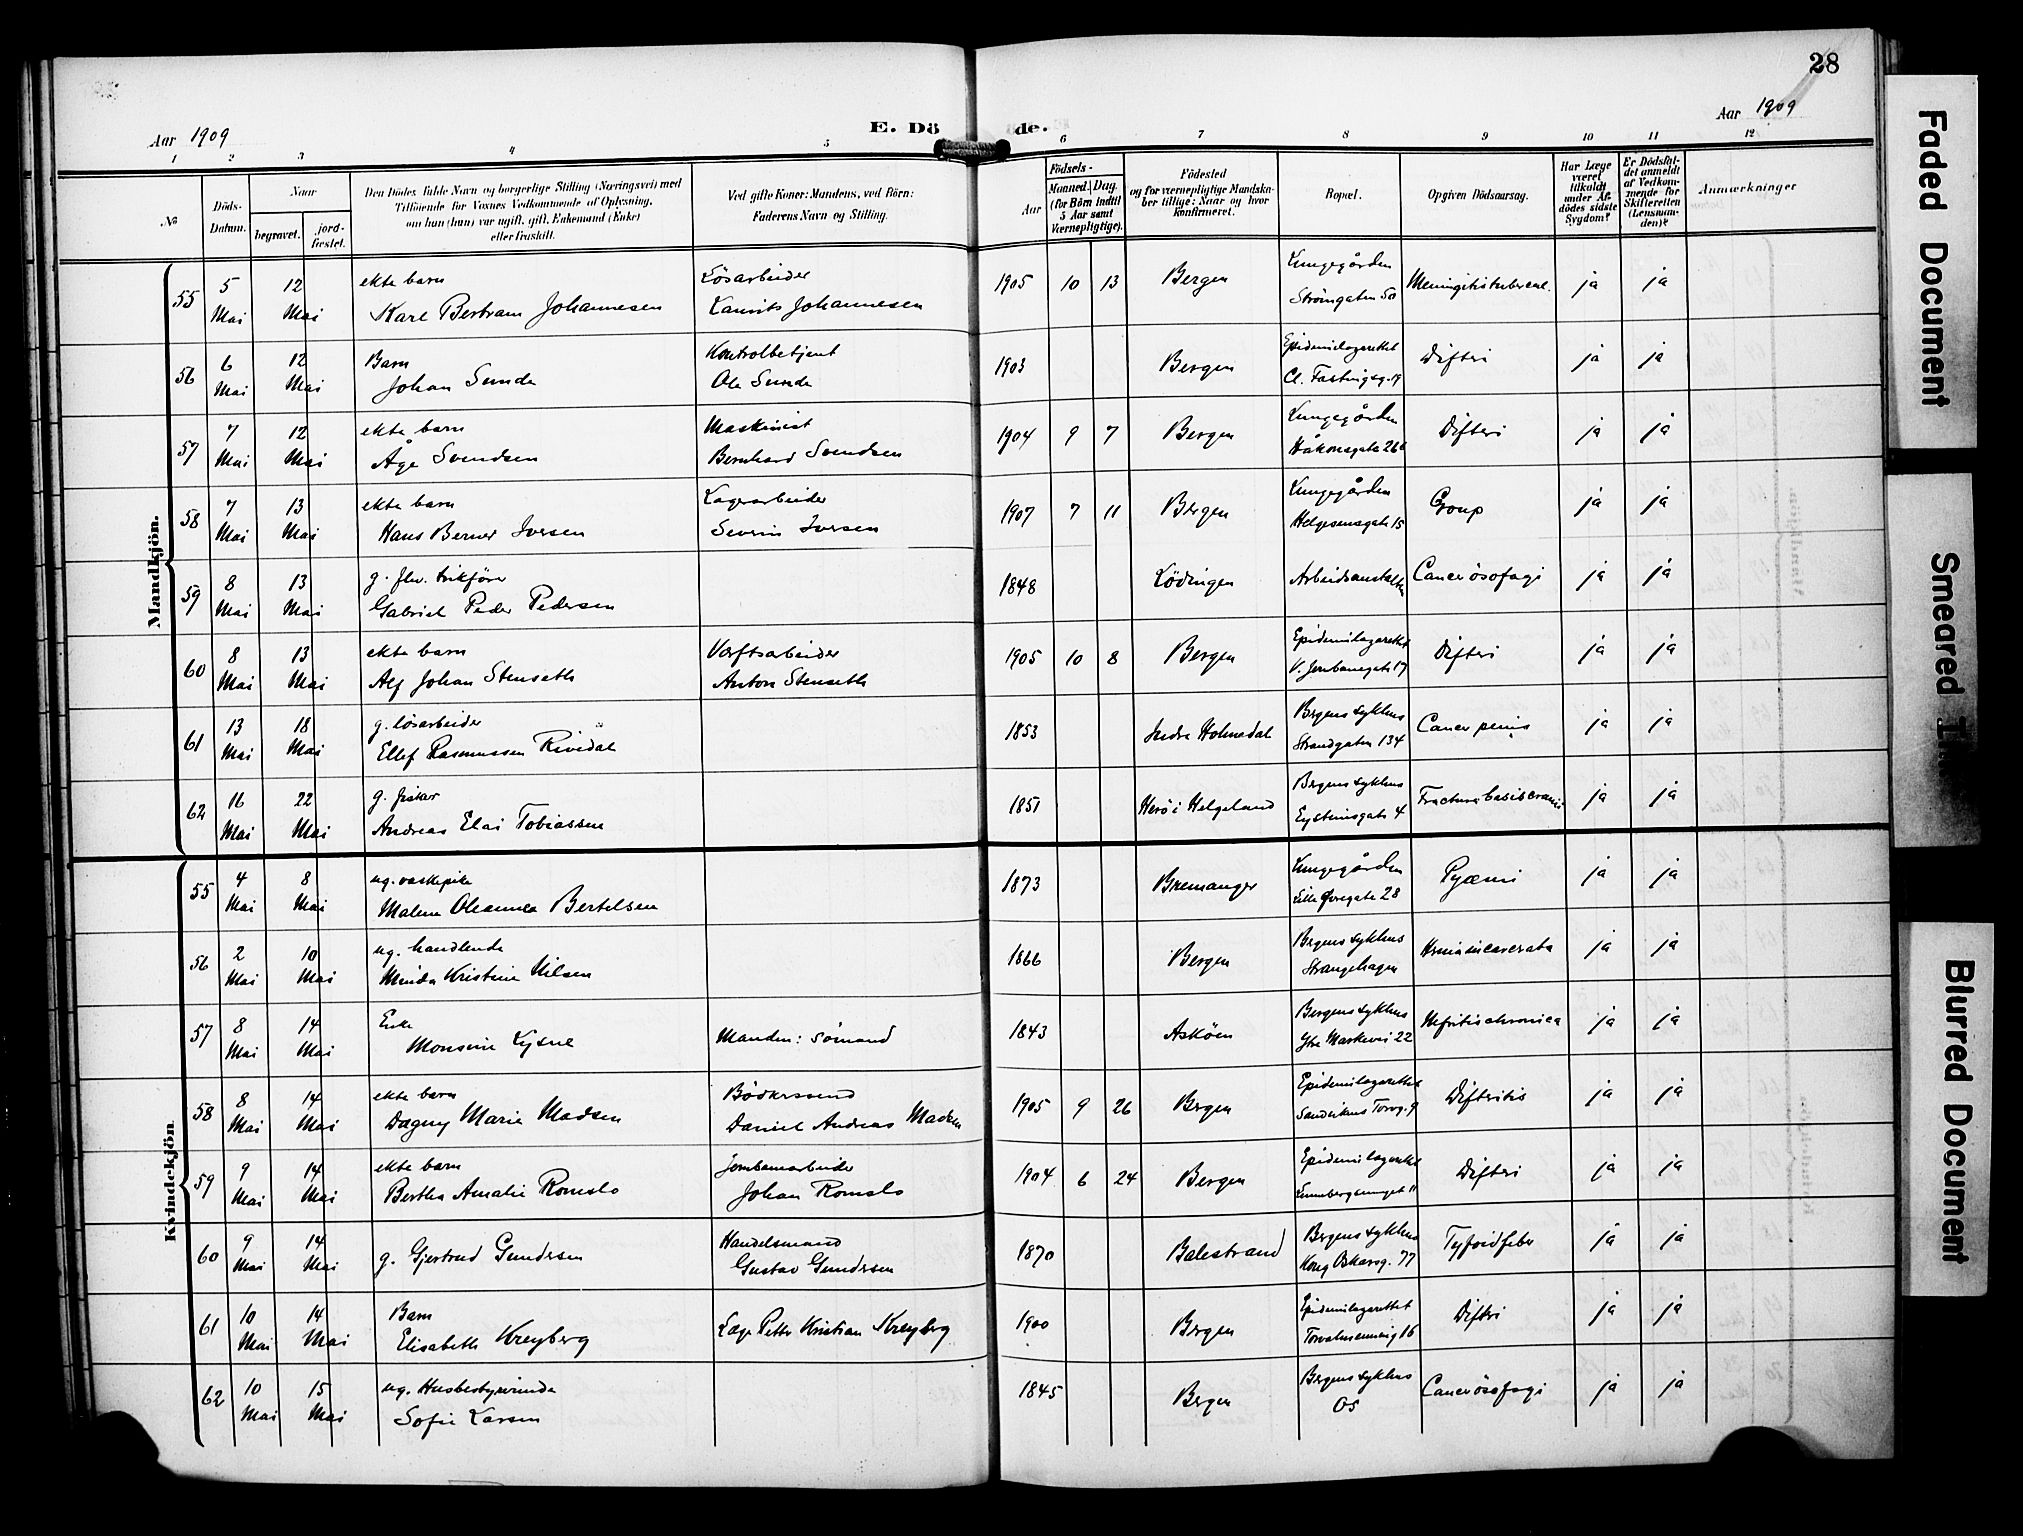 28
Aar 1909
E. Döde.
Aar 1909
1 2 3 4 5 6 7 8 9 10 11 12
№
Döds-
Datum.
Naar
begravet.
jord-
fæstet.
Den Dödes fulde Navn og borgerlige Stilling (Næringsvei) med
Tilföiende for Voxnes Vedkommende af Oplysning,
om han (hun) var ugift, gift, Enkemand (Enke)
eller fraskilt.
Ved gifte Koner: Mandens, ved Börn:
Faderens Navn og Stilling.
Födsels-
Aar
Maaned. Dag.
(for Börn indtil
5 Aar samt
Værnepligtige).
Födested
og for værnepligtige Mandska-
ber tillige: Naar og hvor
konfirmeret.
Bopæl.
Opgiven Dödsaarsag.
Har Læge
været
tilkaldt
under Af-
dödes sidste
Sygdom?
Er Dödsfal-
det anmeldt
af Vedkom-
mende for
Skifteretten
(Lensman-
den)?
Anmærkninger
Mandkjön.
55 5 Mai 12 Mai ekte barn Karl Bertram Johannesen Lösarbeider Laurits Johannesen 1905 10 13 Bergen Lungegården Strömgaten 50 Meningitis tubercul. ja ja
56 6 Mai 12 Mai Barn Johan Sunde Kontrolbetjent Ole Sunde 1903 Bergen Epidemilazarettet Cl. Fastingsg. 19 Difteri ja ja
57 7 Mai 12 Mai ekte barn Åge Svendsen Maskinist Bernhard Svendsen 1904 9 7 Bergen Lungegården Håkonsgate 26b Difteri ja ja
58 7 Mai 13 Mai ekte barn Hans Berner Iversen Lagerarbeider Severin Iversen 1907 7 11 Bergen Lungegården Helgesensgate 15 Croup ja ja
59 8 Mai 13 Mai g. fhv. Gabriel Peder Pedersen 1848 Lödingen Arbeidsanstalten Cancer ösofagi ja ja
60 8 Mai 13 Mai ekte barn Alf Johan Stenseth Verftsarbeider Anton Stenseth 1905 10 8 Bergen Epidemilazarettet V. Jernbanegate 17 Difteri ja ja
61 13 Mai 18 Mai g. lösarbeider Ellef Rasmussen Rivedal 1853 Indre Holmedal Bergens sykehus Strandgaten 134 Cancer penis ja ja
62 16 Mai 22 Mai g. fisker Andreas Elai Tobiassen 1851 Herö i Helgeland Bergens sykehus Eysteinsgate 4 Fractura basis cranii ja ja
Kvindekjön.
55 4 Mai 8 Mai ug. vaskepike Malene Oleanna Bertelsen 1873 Bremanger Lungegården Lille Øvregate 28 Pyæmi ja ja
56 2 Mai 10 Mai ug. handlende Minda Kristine Nilsen 1866 Bergen Bergens sykehus Strangehagen Hernia incarcerata ja ja
57 8 Mai 14 Mai Enke Monsine Lysne Manden: sömand 1843 Asköen Bergens sykehus Ytre Markevei 22 Nefritis chronica ja ja
58 8 Mai 14 Mai ekte barn Dagny Marie Madsen Bödkersvend Daniel Andreas Madsen 1905 9 26 Bergen Epidemilazarettet Sandvikens Torvg. 9 Difteritis ja ja
59 9 Mai 14 Mai ekte barn Bertha Amalie Romslo Jernbanearbeider Johan Romslo 1904 6 24 Bergen Epidemilazarettet 11 Difteri ja ja
60 9 Mai 14 Mai g. Gjertrud Gundersen Handelsmand Gustav Gundersen 1870 Balestrand Bergens sykehus Kong Oskarsg. 77 Tyfoidfeber ja ja
61 10 Mai 14 Mai Barn Elisabeth Kreyberg Læge Peter Kristian Kreyberg 1900 Bergen Epidemilazarettet Torvalmenning 16 Difteri ja ja
62 10 Mai 15 Mai ug. Husbestyrerinde Sofie Larsen 1845 Bergen Bergens sykehus Os Cancer ösofagi ja ja
Faded Document
Smeared
Blurred Document